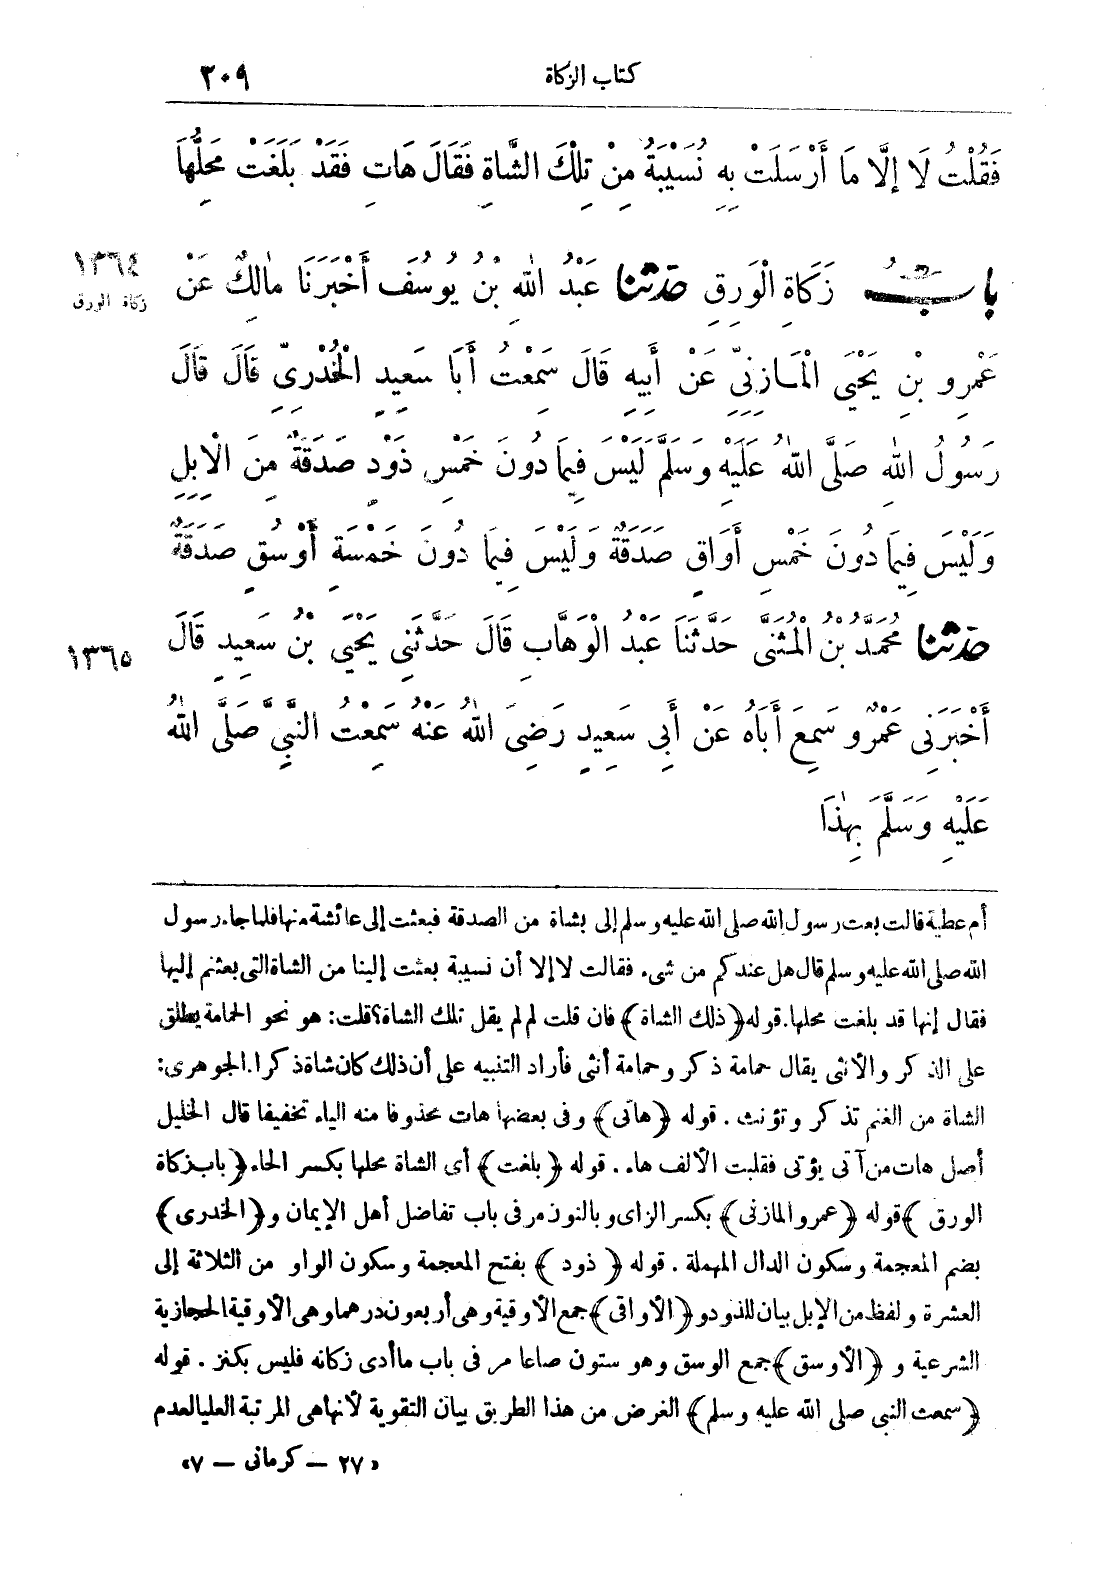 كتاب الزكاة
٢٠٩
فَقُلْتُ لَا إِلَّا مَا أَرْسَلَتْ بِهِ نُسَيْبَةُ مِنْ تِلْكَ الشَّاةِ فَقَالَ هَاتِ فَقَدْ بَلَغَتْ مَحِلَّهَا
بابُ زَكَاةِ الْوَرِقِ حدثنا عَبْدُ اللهِ بْنُ يُوسُفَ أَخْبَرَنَا مَالِكٌ عَنْ
١٣٦٤
زكاة الورق
عَمْرِو بْنِ يَحْيَى الْمَازِنِيِّ عَنْ أَبِيهِ قَالَ سَمِعْتُ أَبَا سَعِيدٍ الْخُدْرِيَّ قَالَ قَالَ
رَسُولُ اللهِ صَلَّى اللهُ عَلَيْهِ وَسَلَّمَ لَيْسَ فِيمَا دُونَ خَمْسِ ذَوْدٍ صَدَقَةٌ مِنَ الْإِبِلِ
وَلَيْسَ فِيمَا دُونَ خَمْسِ أَوَاقٍ صَدَقَةٌ وَلَيْسَ فِيمَا دُونَ خَمْسَةِ أَوْسُقٍ صَدَقَةٌ
حدثنا مُحَمَّدُ بْنُ الْمُثَنَّى حَدَّثَنَا عَبْدُ الْوَهَّابِ قَالَ حَدَّثَنِي يَحْيَى بْنُ سَعِيدٍ قَالَ
١٣٦٥
أَخْبَرَنِي عَمْرٌو سَمِعَ أَبَاهُ عَنْ أَبِي سَعِيدٍ رَضِيَ اللهُ عَنْهُ سَمِعْتُ النَّبِيَّ صَلَّى اللهُ
عَلَيْهِ وَسَلَّمَ بِهٰذَا
أم عطية قالت بعث رسول الله صلى الله عليه وسلم إلى بشاة من الصدقة فبعثت إلى عائشة منها فلما جاء رسول
الله صلى الله عليه وسلم قال هل عندكم من شىء فقالت لا إلا أن نسيبة بعثت إلينا من الشاة التى بعثتم إليها
فقال إنها قد بلغت محلها. قوله ﴿ذلك الشاة﴾ فان قلت لم لم يقل تلك الشاة؟ قلت: هو نحو الحمامة يطلق
على الذكر والأنثى يقال حمامة ذكر وحمامة أنثى فأراد التنبيه على أن ذلك كان شاة ذكرا. الجوهرى:
الشاة من الغنم تذكر وتؤنث. قوله ﴿هاتى﴾ وفى بعضها هات محذوفا منه الياء تخفيفا قال الخليل
أصل هات من آتى يؤتى فقلبت الألف هاء. قوله ﴿بلغت﴾ أى الشاة محلها بكسر الحاء ﴿باب زكاة
الورق﴾ قوله ﴿عمرو المازنى﴾ بكسر الزاى وبالنون مر فى باب تفاضل أهل الإيمان و﴿الخدرى﴾
بضم المعجمة وسكون الدال المهملة. قوله ﴿ذود﴾ بفتح المعجمة وسكون الواو من الثلاثة إلى
العشرة ولفظ من الإبل بيان للذود و﴿الأواقى﴾ جمع الأوقية وهى أربعون درهما وهى الأوقية الحجازية
الشرعية و﴿الأوسق﴾ جمع الوسق وهو ستون صاعا مر فى باب ما أدى زكاته فليس بكنز. قوله
﴿سمعت النبى صلى الله عليه وسلم﴾ الغرض من هذا الطريق بيان التقوية لأنها هى المرتبة العليا لعدم
«٢٧ – كرمانى – ٧»